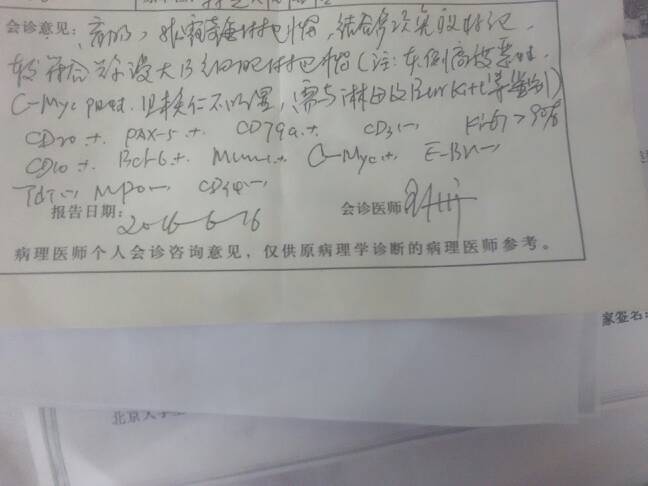 会诊意见：（高的），非霍奇金淋巴瘤，结合多次免疫标记，
较符合弥漫大B细胞淋巴瘤（注：本例高度恶性，
C-Myc 且核仁不明显，需与淋母及Burkitt等鉴别）
CD20+ PAX-5+ CD79a+ CD3(-) Ki-67>90%
CD10+ Bcl-6+ Mum1+ C-Myc+ E-BV(-)
TdT(-) MPO(-) CD34(-)
报告日期：2016-6-16 会诊医师
病理医师个人会诊咨询意见，仅供原病理学诊断的病理医师参考。
家签名：
北京大学